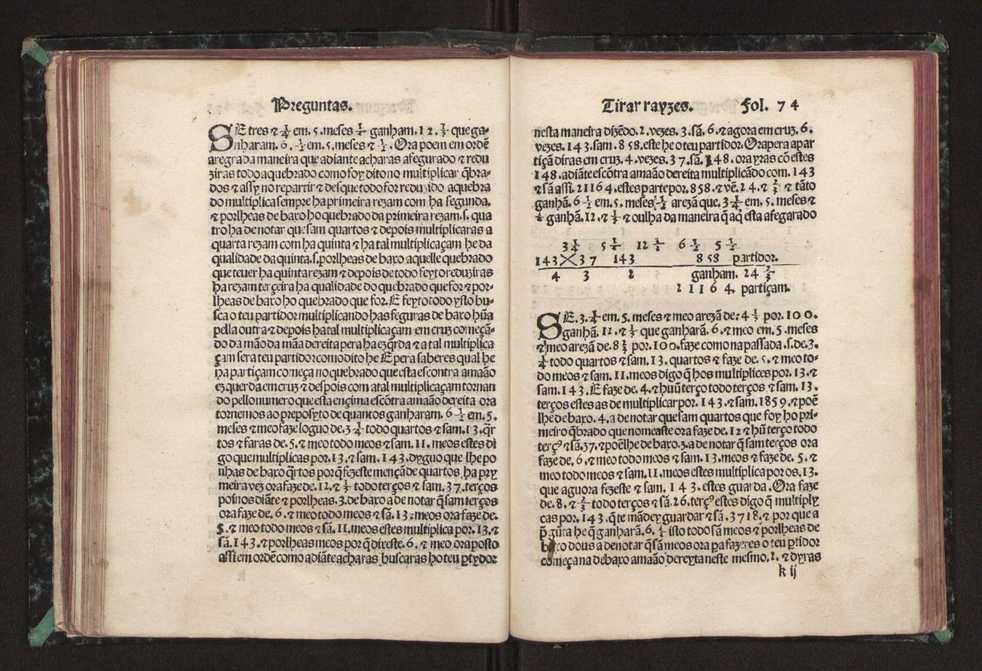 Preguntas.
SE tres & ¼ em. 5. meses ½ ganham. 12. ⅓ que ga-
nharam. 6. ½ em. 5. meses & ½. Ora poem em ordẽ
a regra da maneira que adiante acharas afegurado & redu
ziras todo a quebrado como foy dito no multiplicar q̃bra-
dos & assy no repartir & desque todo for reduzido a quebra
do multiplica sempre ha primeira rezam com ha segunda.
& porlheas de baxo ho quebrado da primeira rezam. s. qua
tro ha de notar que sam quartos & depois multiplicaras a
quarta rezam com ha quinta & ha tal multiplicaçam he da
qualidade da quinta. s. porlheas de baxo aquelle quebrado
que teuer ha quinta rezam & depois de todo feyto reduziras
ha rezam terçeira ha qualidade do quebrado que for & por-
lheas de baxo ho quebrado que for. E feyto todo ysto bu-
sca o teu partidor multiplicando has feguras de baxo hũa
pella outra & depois ha tal multiplicaçam em cruz começã-
do da mão da mãa dereita pera ha ezq̃rda & a tal multiplica
çam sera teu partidor como dito he E pera saberes qual he
ha partiçam começa no quebrado que esta escontra a maão
ezquerda em cruz & despois com a tal multiplicaçam tornan
do pello numero que esta ençima escõtra a maão dereita ora
tornemos ao preposyto de quantos ganharam. 6 ½ em. 5.
meses & meo faze loguo de. 3 ¼ todo quartos & sam. 13. q̃r
tos & faras de. 5. & meo todo meos & sam. 11. meos estes di
go que multiplicas por. 13. & sam. 143. dyguo que lhe po
nhas de baxo q̃rtos por q̃ fezeste mençã de quartos ha pry
meira vez ora faze de. 12. & ⅓ todo terços & sam. 37. terços
poĩnos diãte & porlheas. 3. de baxo a de notar q̃ sam terços
ora faze de. 6. & meo todo meos & sã. 13. meos ora faze de.
5. & meo todo meos & sã. 11. meos estes multiplica por. 13. &
sã. 143. & porlheas meos por q̃ direste. 6. & meo ora posto
assi em ordẽ como a diãte acharas buscaras ho teu ꝑtydor
Tirar rayzes. Fol. 74
nesta maneira dizẽdo. 2. vezes. 3. sã. 6. & agora em cruz. 6.
vezes. 143. sam. 858. este he o teu partidor. Ora pera a par
tiçã diras em cruz. 4. vezes. 37. sã. 148. ora yras cõ estes
148. adiante escõtra amaão dereita multiplicãdo com. 143
& sã assi. 21164. estes parte por. 858. & vẽ. 24. & ⅔ & tãto
ganhã. 6 ½ em. 5. meses ½ a rezã que. 3 ¼ em. 5. meses &
½ ganhã. 12. & ⅓ & oulha da maneira q̃ aq̃ esta afegarado
3 ¼ 5 ½ 12 ⅓ 6 ½ 5 ½
143 37 143 858 partidor.
4 3 2 ganham. 24 ⅔
21164. partiçam.
SE. 3. ¼ em. 5. meses & meo a rezã de: 4 ⅓ por. 100.
ganhã. 12. & ⅓ que ganharã. 6. & meo em. 5. meses
& meo a rezã de. 8 ⅔ por. 100. faze como na passada. s. de. 3.
¼ todo quartos & sam. 13. quartos & faze de. 5. & meo to-
do meos & sam. 11. meos digo q̃ hos multiplices por. 13. &
sam. 143. E faze de. 4. & huũ terço todo terços & sam. 13.
terços estes as de multiplicar por. 143. & sam. 1859. & poẽ
lhe de baxo. 4. a de notar que sam quartos que foy ho pri-
meiro q̃brado que nomeaste ora faze de. 12 & hũ terço todo
terçꝰ & sã. 37. & poẽ lhe de baxo. 3. a de notar q̃ sam terços ora
faze de. 6. & meo todo meos & sam. 13. meos & faze de. 5. &
meo todo meos & sam. 11. meos estes multiplica por os. 13.
que aguora fezeste & sam. 143. estes guarda. Ora faze
de. 8. & ⅔ todo terços & sã. 26. terçꝰ estes digo q̃ multiply
cas por. 143. q̃ te mãdey guardar & sã. 3718. & por que a
p̃gũta he q̃ ganharã. 6. ½ isto todo sã meos & porlheas de
baxo dous a denotar q̃ sã meos ora pa fazeres o teu ꝑtidor
começa na de baxo a maão dereyta neste mesmo. 2. & dyras
k ij